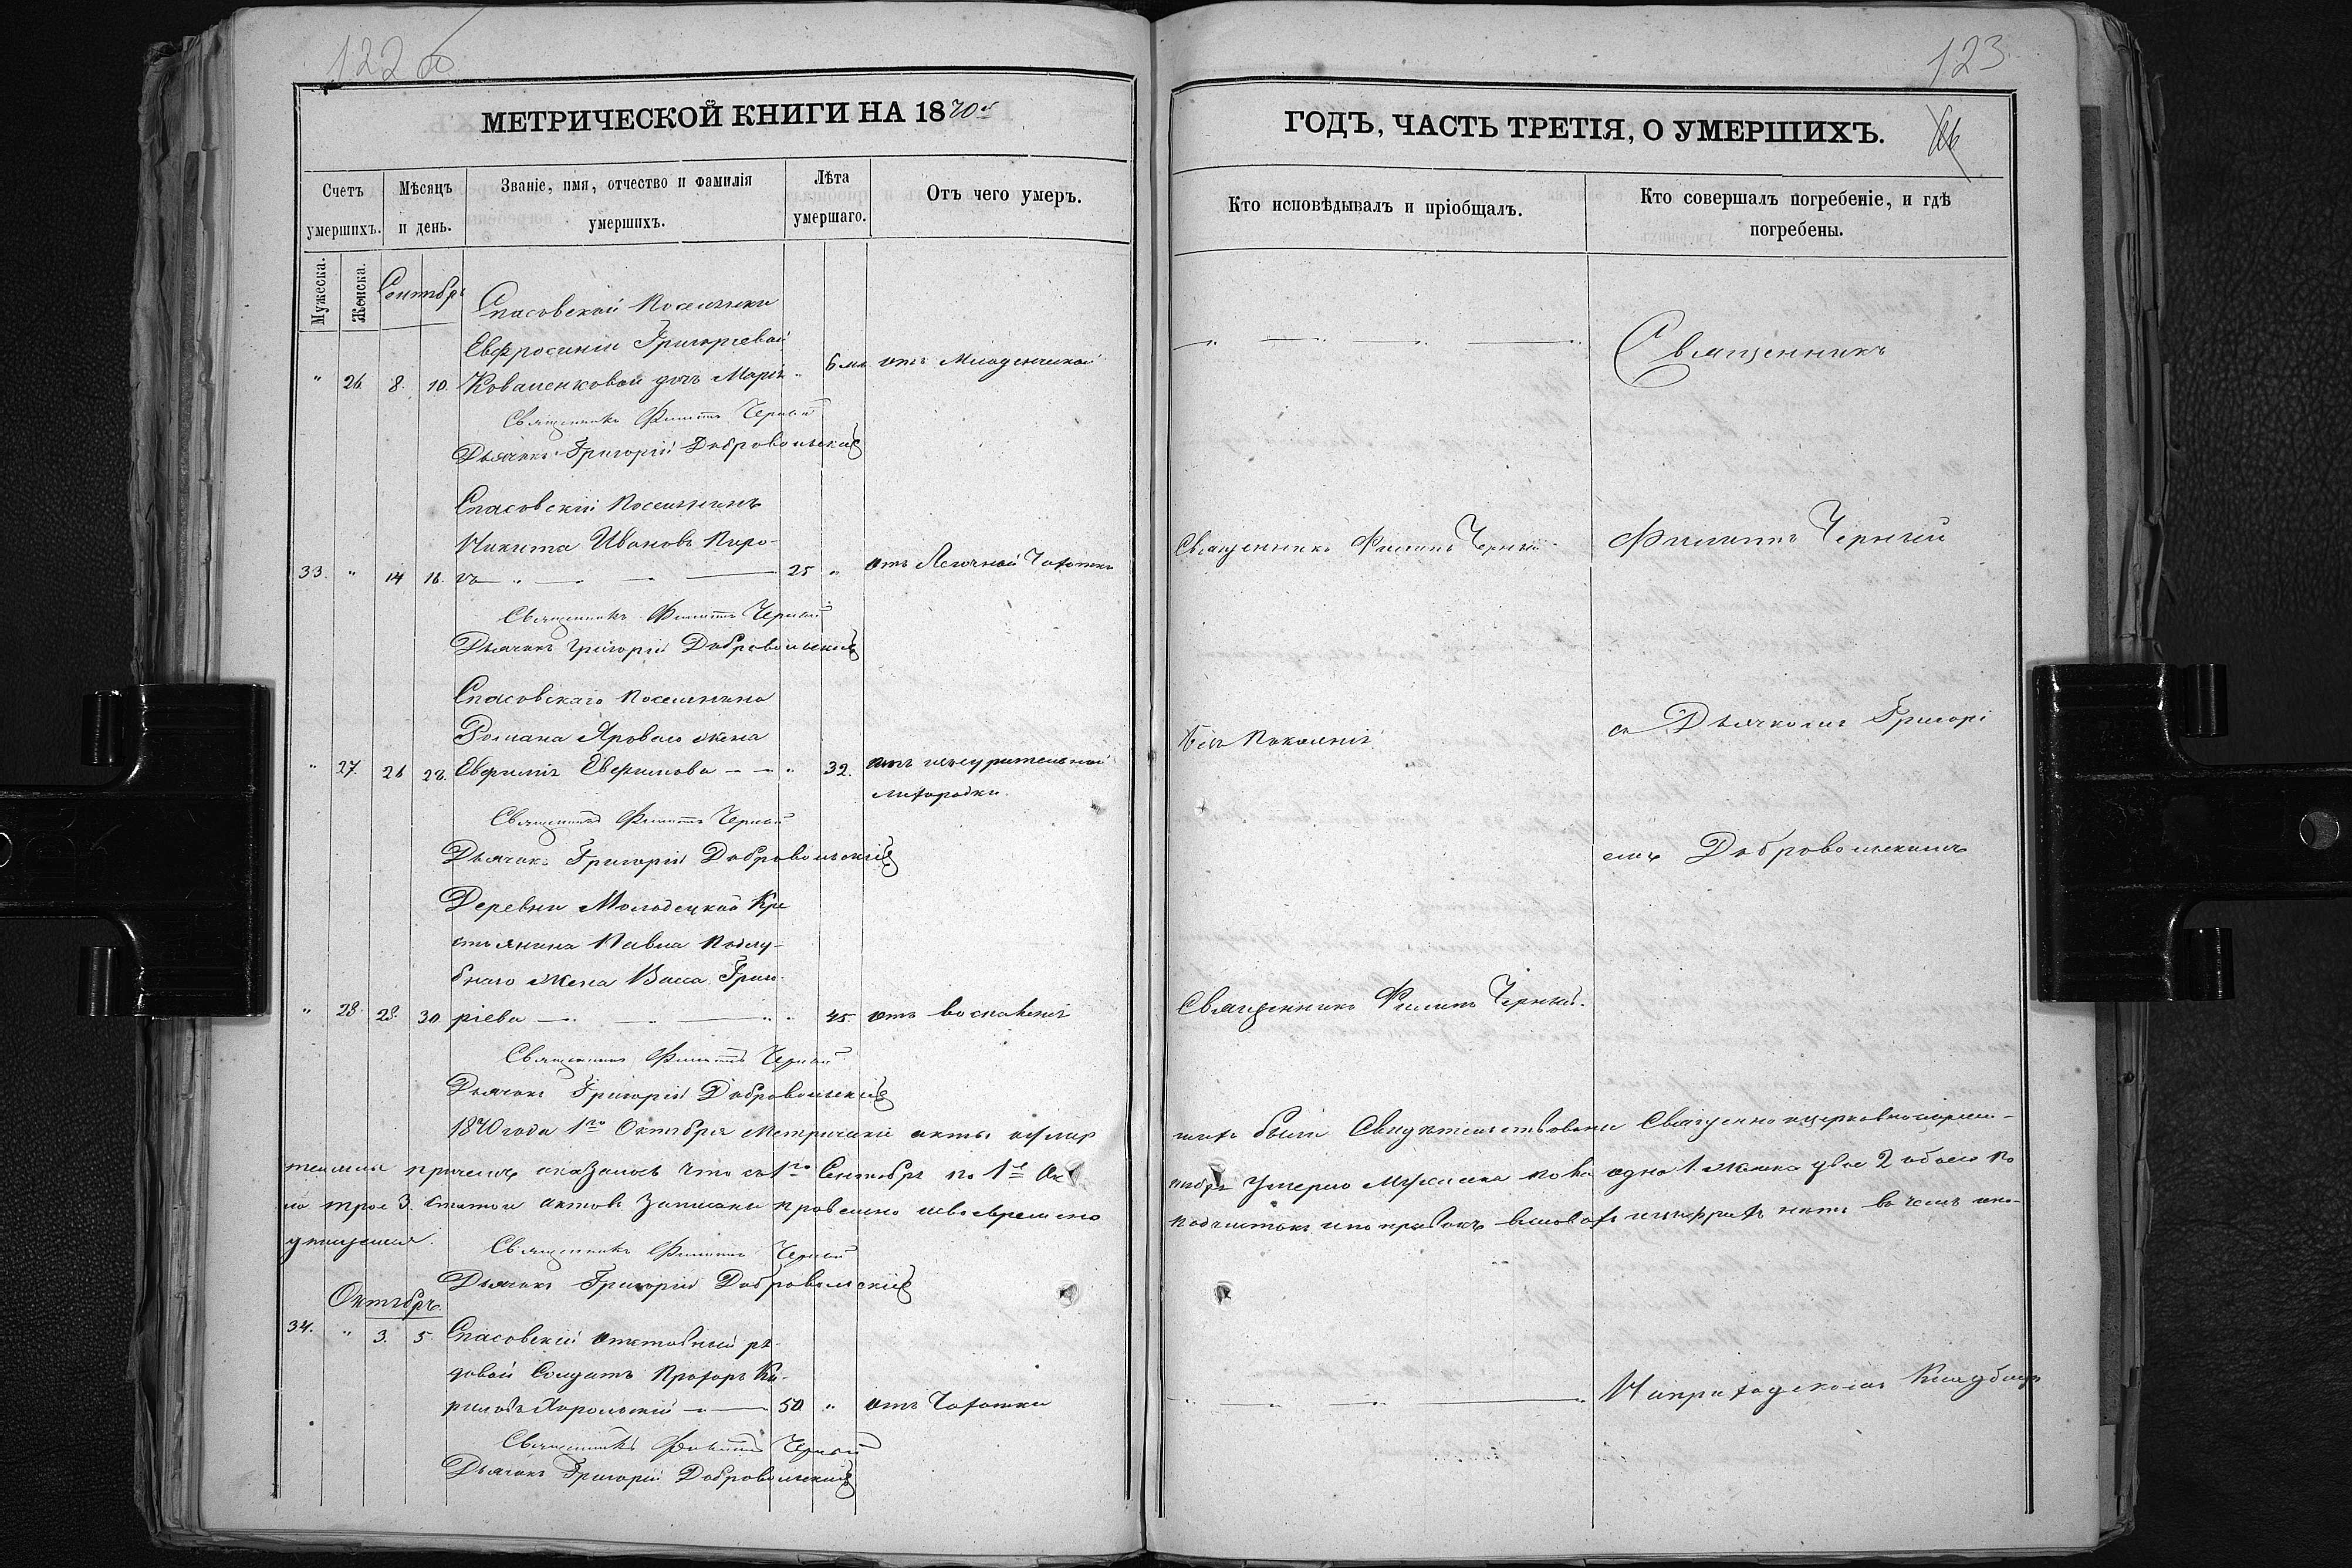 122 б
МЕТРИЧЕСКОЙ КНИГИ НА 1870й
Счетъ умершихъ.
Мѣсяцъ и день.
Званіе, имя, отчество и фамилія умершихъ.
Лѣта умершаго.
Отъ чего умеръ.
Мужеска.
Женска.
Сентябрь
Спасовской Поселянки
Евфросиніи Григорьевой
" 26 8. 10. Коваленковой дочь Марія 6 м. отъ Младенческой
Священникъ Филиппъ Черный
Дьячокъ Григорій Добровольскій
Спасовскій Поселянинъ
Никита Ивановъ Пиро-
33. " 14 16. гъ 25 " отъ Легочной Чахотки
Священникъ Филиппъ Черный
Дьячокъ Григорій Добровольскій
Спасовскаго Поселянина
Романа Яроваго жена
" 27. 26 28. Евфимія Евфимова " 32. отъ изнурительной
лихорадки.
Священникъ Филиппъ Черный
Дьячокъ Григорій Добровольскій
Деревни Молодецкой Кре
стьянина Павла Подду-
бнаго жена Васса Григо-
" 28. 28. 30 ріева " 45. отъ воспаленія
Священникъ Филиппъ Черный
Дьячокъ Григорій Добровольскій
1870 года 1го Октября Метрическіе акты
причемъ оказалось что съ 1го Сентября по 1е Ок
трое 3. актовъ записаны правильно и своевременно
Священникъ Филиппъ Черный
Дьячокъ Григорій Добровольскій
Октябрь.
34. " 3. 5. Спасовскій отставный ря-
довой Солдатъ Прохоръ Ки-
риловъ Хорольскій 50 " отъ Чахотки
Священникъ Филиппъ Черный
Дьячокъ Григорій Добровольскій
123
ГОДЪ, ЧАСТЬ ТРЕТІЯ, О УМЕРШИХЪ.
Кто исповѣдывалъ и пріобщалъ.
Кто совершалъ погребеніе, и гдѣ погребены.
Священникъ
Священникъ Филиппъ Черный
Филиппъ Черный
Безъ Покаянія
съ Дьячкомъ Григорі
емъ Добровольскимъ
Священникъ Филиппъ Черный.
были Свидѣтельствованы Священно
тябрь Умерло Мужеска пола одно 1. женска двое 2 обоего по
нѣтъ въ чемъ
На приходскомъ Кладбищѣ